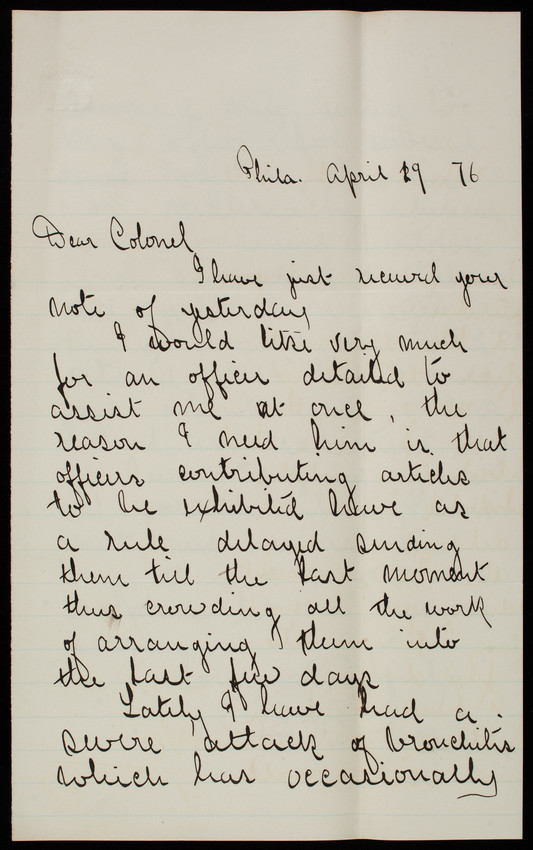 Phila. April 29 76
Dear Colonel
I have just received your
note of yesterday
I would like very much
for an officer detailed to
assist me at once, the
reason I need him is that
officers contributing articles
to be exhibited have as
a rule delayed sending
them till the last moment
thus crowding all the work
of arranging them into
the last few days
Lately I have had a
severe attack of bronchitis
which has occasionally